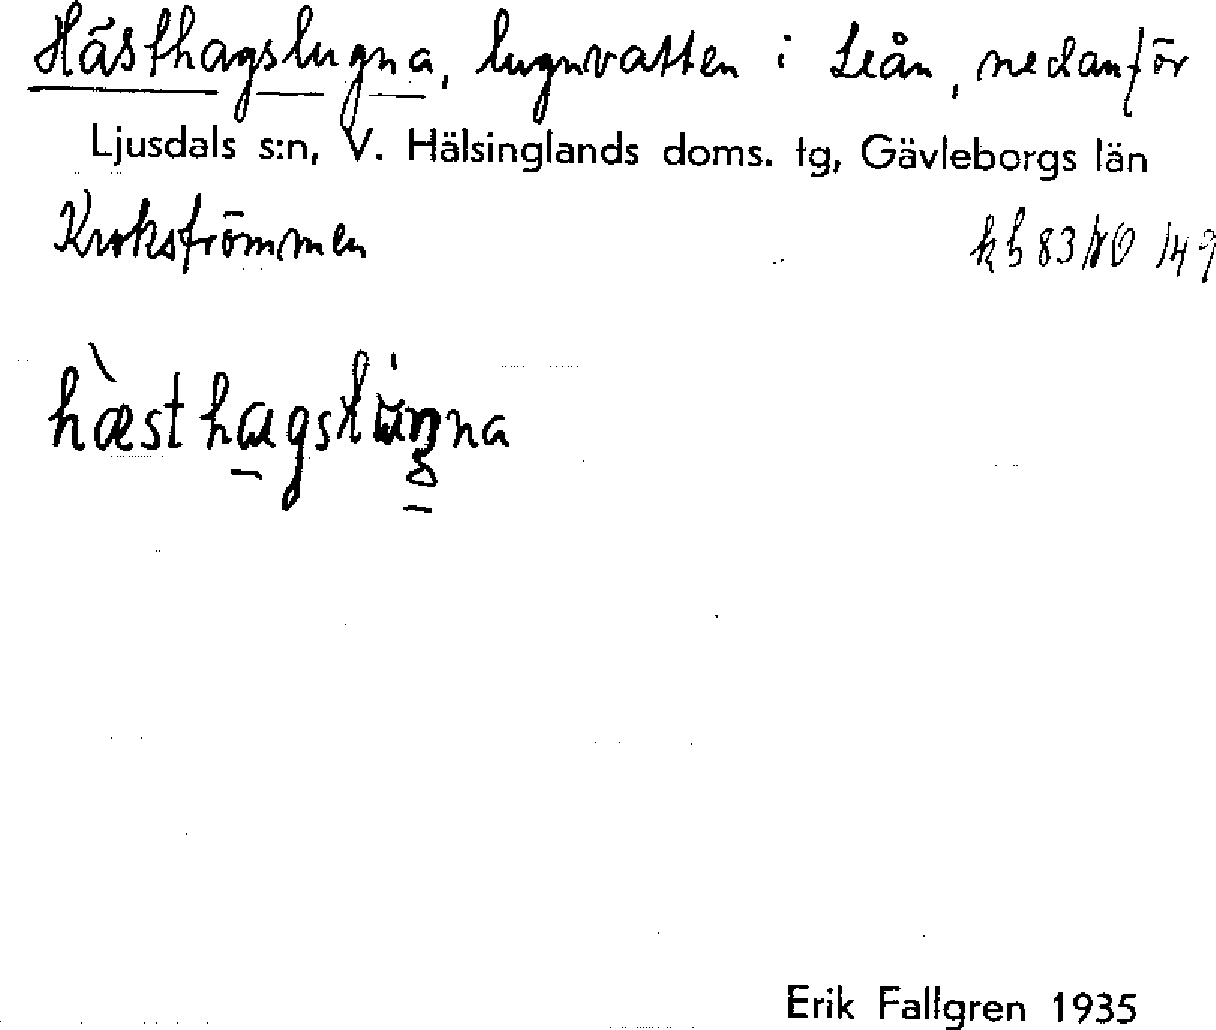 Hästhagslugna, lugnvatten i Leån, nedanför
Ljusdals s:n, V. Hälsinglands doms. tg, Gävleborgs län
Krokströmmen
kb 83 /49
hæsthagsluŋna
Erik Fallgren 1935